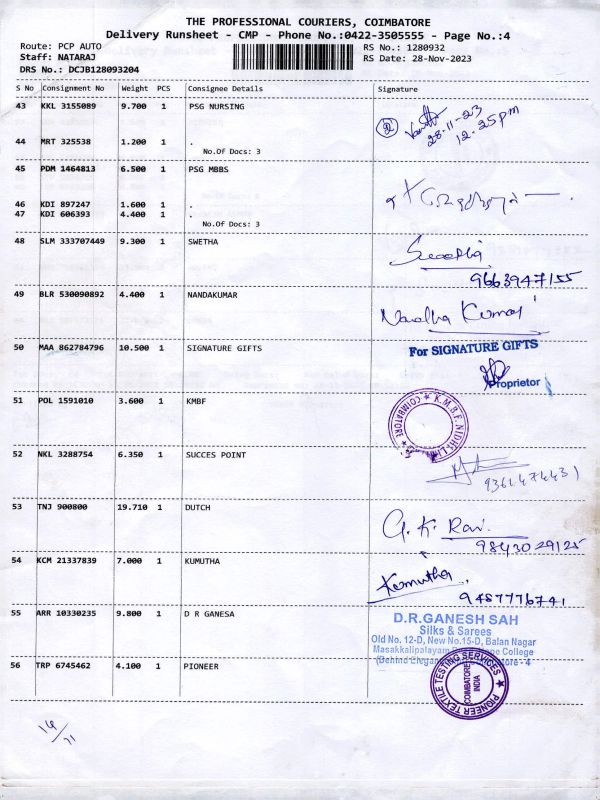 THE PROFESSIONAL COURIERS, COIMBATORE
Delivery Runsheet - CMP - Phone No.:0422-3505555 - Page No.:4
Route: PCP AUTO
RS No.: 1280932
Staff: NATARAJ
RS Date: 28-Nov-2023
DRS No.: DCJB128093204
S No Consignment No Weight PCS Consignee Details Signature
43 KKL 3155089 9.700 1 PSG NURSING
28-11-23
12.25pm
44 MRT 325538 1.200 1 .
No.Of Docs: 3
45 PDM 1464813 6.500 1 PSG MBBS
46 KDI 897247 1.600 1 .
47 KDI 606393 4.400 1 .
No.Of Docs: 3
48 SLM 333707449 9.300 1 SWETHA
9663947155
49 BLR 530090892 4.400 1 NANDAKUMAR
Nandha Kumar
50 MAA 862784796 10.500 1 SIGNATURE GIFTS
For SIGNATURE GIFTS
Proprietor
51 POL 1591010 3.600 1 KMBF
K.M.B.F. NIDHI LIMITED
COIMBATORE
52 NKL 3288754 6.350 1 SUCCES POINT
9361474431
53 TNJ 900800 19.710 1 DUTCH
G. K. Ravi.
9843029125
54 KCM 21337839 7.000 1 KUMUTHA
Kumutha
9487776741
55 ARR 10330235 9.800 1 D R GANESA
D.R.GANESH SAH
Silks & Sarees
Old No. 12-D, New No.15-D, Balan Nagar
Masakkalipalayam College
(Behind - 4
56 TRP 6745462 4.100 1 PIONEER
PIONEER TEXTILE TESTING SERVICES
COIMBATORE
INDIA
14/71